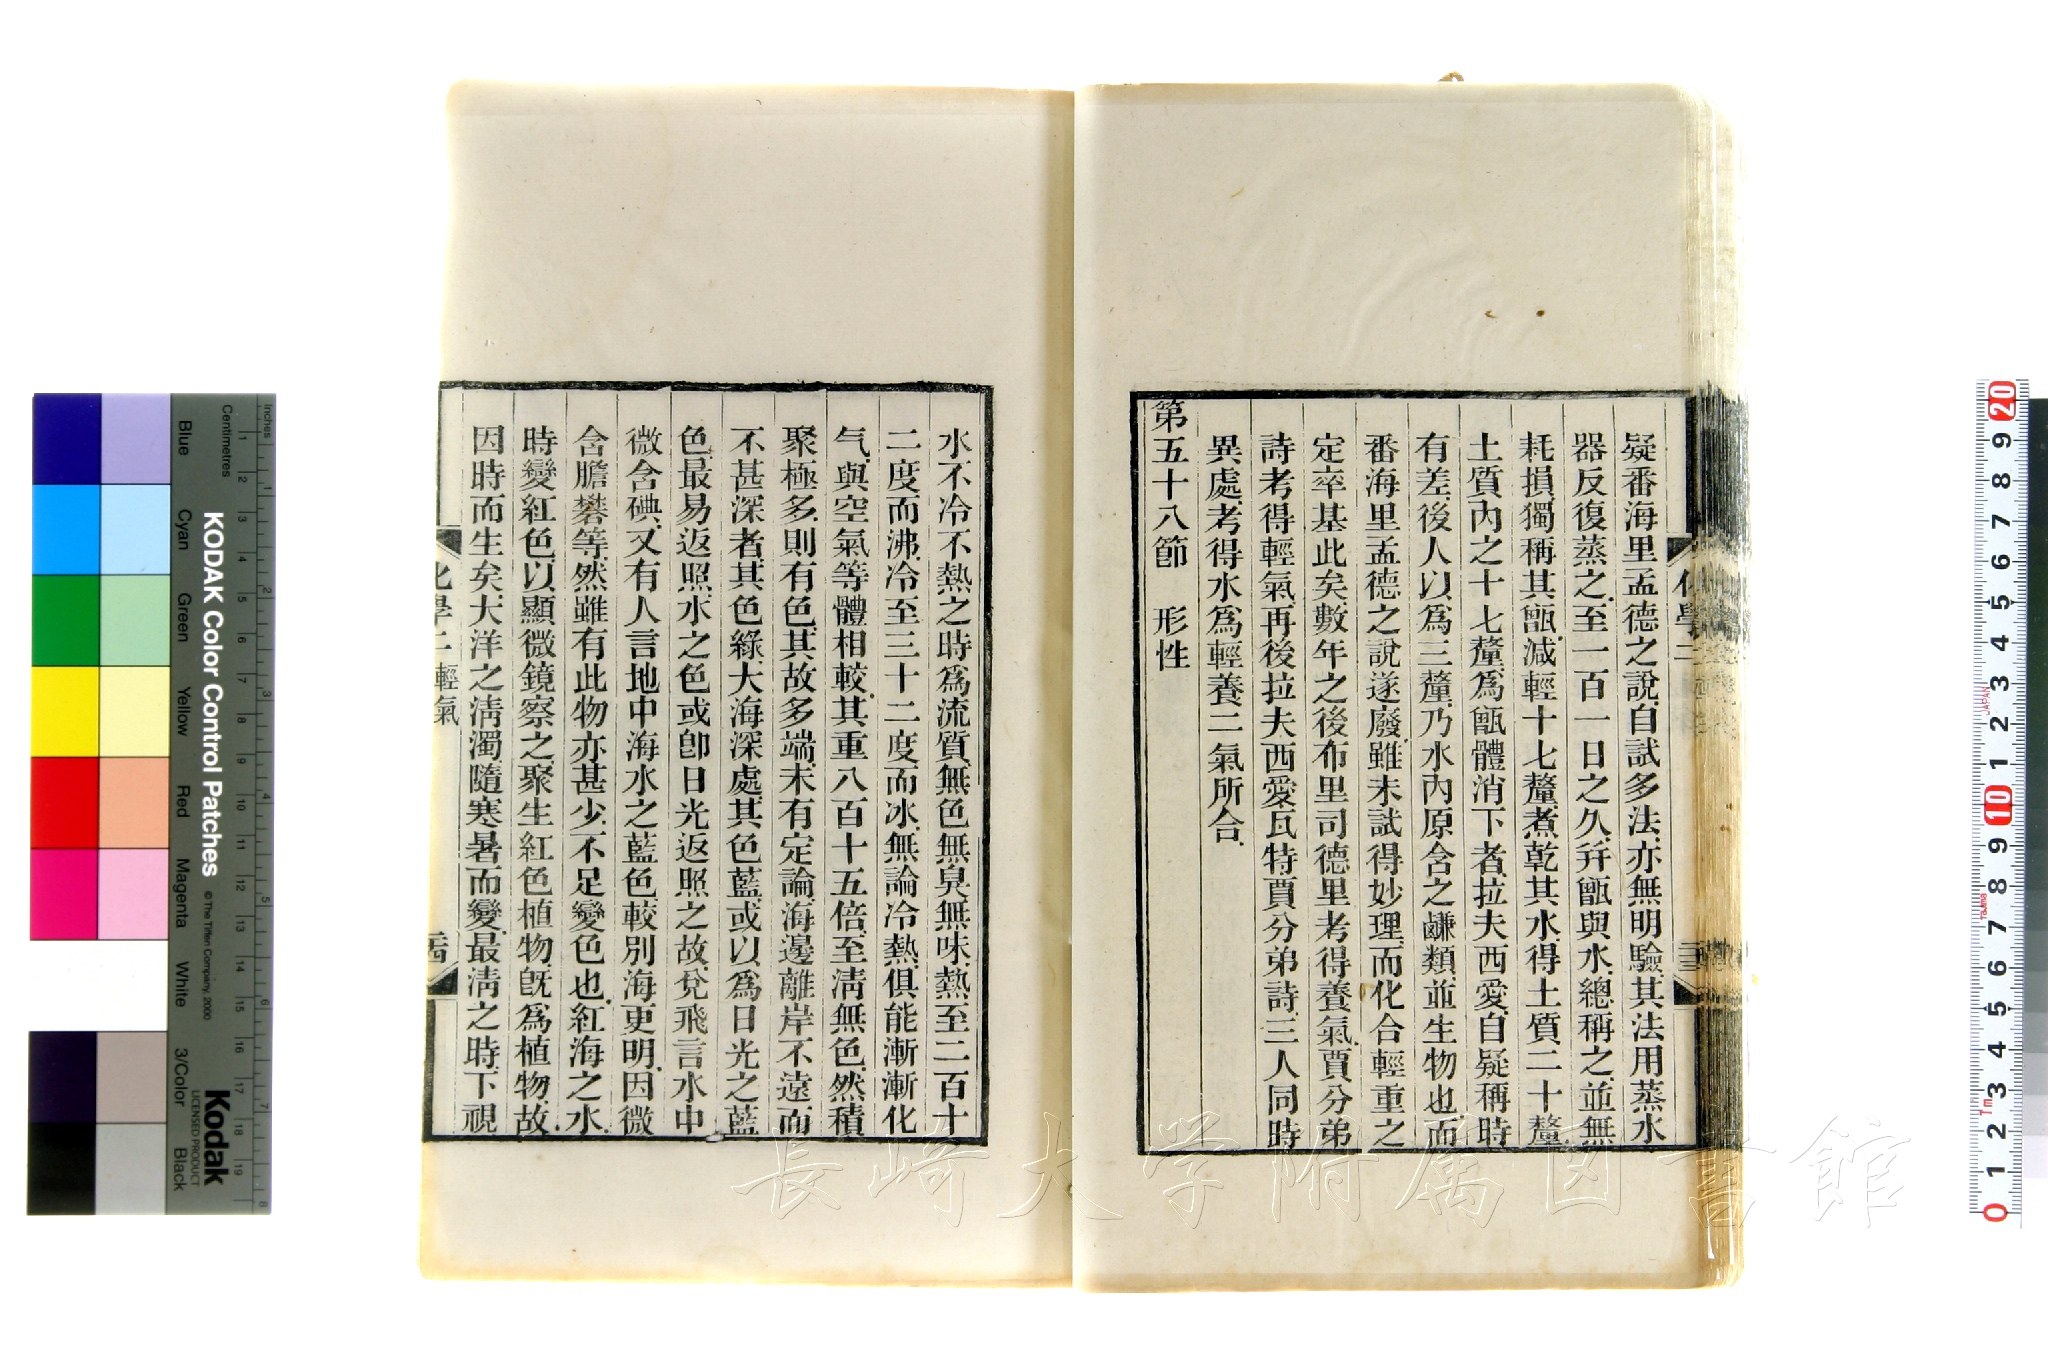 疑番海里孟德之說自試多法亦無明驗其法用蒸水
器反復蒸之至一百一日之久幷甑與水總稱之並無
耗損獨稱其甑減輕十七釐煮乾其水得土質二十釐
土質內之十七釐爲甑體消下者拉夫西愛自疑稱時
有差後人以爲三釐乃水內原含之鹻類並生物也而
番海里孟德之說遂廢雖未試得妙理而化合輕重之
定率基此矣數年之後布里司德里考得養氣賈分弟
詩考得輕氣再後拉夫西愛瓦特賈分弟詩三人同時
異處考得水爲輕養二氣所合
第五十八節 形性
水不冷不熱之時爲流質無色無臭無味熱至二百十
二度而沸冷至三十二度而冰無論冷熱俱能漸漸化
气與空氣等體相較其重八百十五倍至淸無色然積
聚極多則有色其故多端未有定論海邊離岸不遠而
不甚深者其色綠大海深處其色藍或以爲日光之藍
色最易返照水之色或卽日光返照之故兌飛言水中
微含碘又有人言地中海水之藍色較別海更明因微
含膽礬等然雖有此物亦甚少不足變色也紅海之水
時變紅色以顯微鏡察之聚生紅色植物旣爲植物故
因時而生矣大洋之淸濁隨寒暑而變最淸之時下視
化學二 輕氣
KODAK Color Control Patches
© The Tiffen Company, 2000
Kodak
LICENSED PRODUCT
Inches
Centimetres
Blue
Cyan
Green
Yellow
Red
Magenta
White
3/Color
Black
長崎大学附属図書館